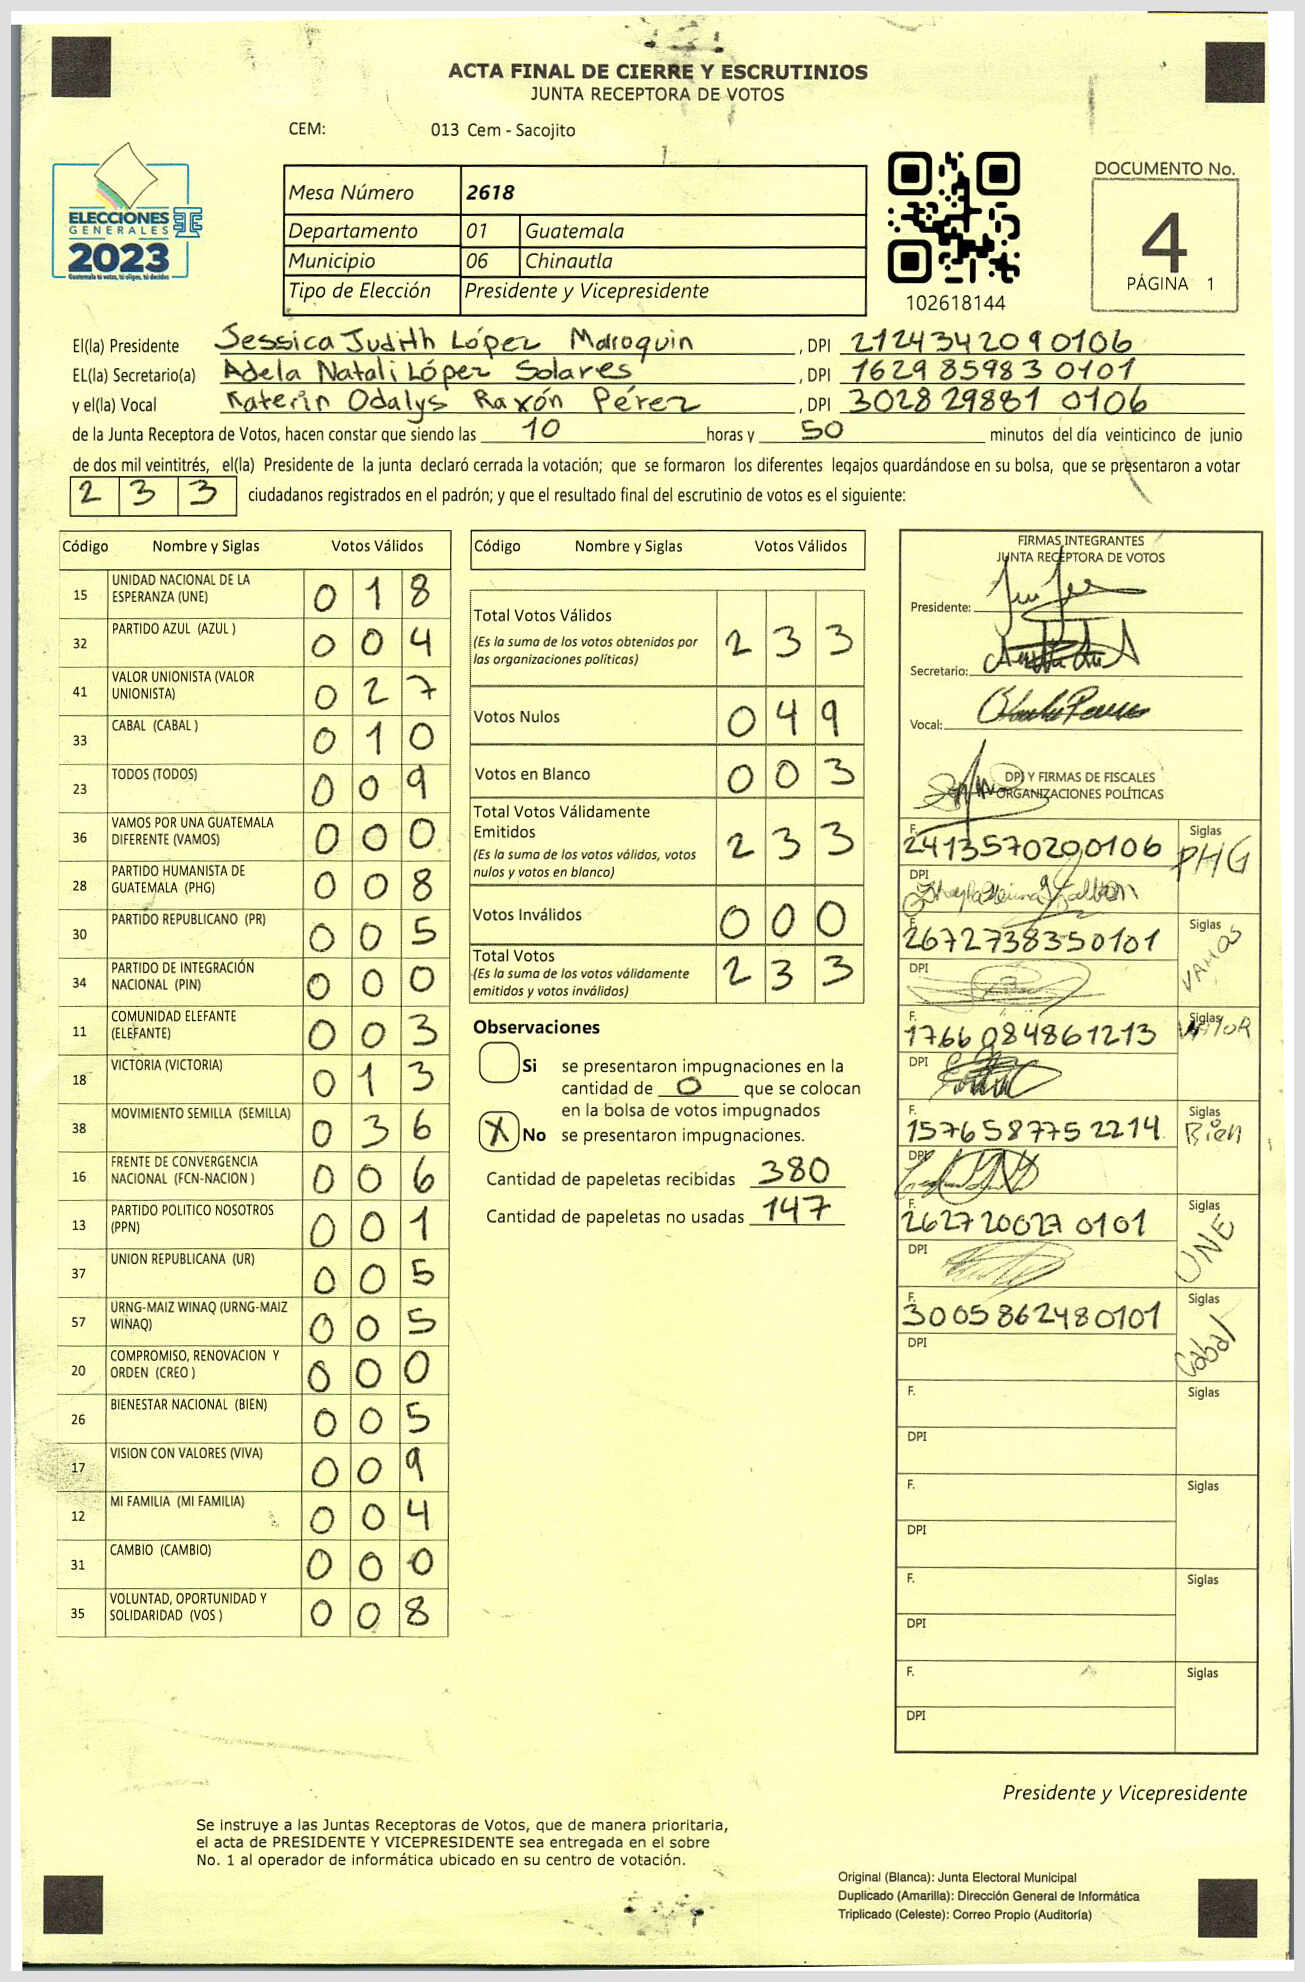 ACTA FINAL DE CIERRE Y ESCRUTINIOS
JUNTA RECEPTORA DE VOTOS
CEM: 013 Cem - Sacojito
ELECCIONES
GENERALES
2023
Guatemala tú votas, tú eliges, tú decides
Mesa Número 2618
Departamento 01 Guatemala
Municipio 06 Chinautla
Tipo de Elección Presidente y Vicepresidente
102618144
DOCUMENTO No.
4
PÁGINA 1
El(la) Presidente Jessica Judith López Maroquin , DPI 2124342090106
EL(la) Secretario(a) Adela Natali López Solares , DPI 1629859830101
y el(la) Vocal Katerin Odalys Raxón Pérez , DPI 3028298810106
de la Junta Receptora de Votos, hacen constar que siendo las 10 horas y 50 minutos del día veinticinco de junio
de dos mil veintitrés, el(la) Presidente de la junta declaró cerrada la votación; que se formaron los diferentes legajos guardándose en su bolsa, que se presentaron a votar
233 ciudadanos registrados en el padrón; y que el resultado final del escrutinio de votos es el siguiente:
Código Nombre y Siglas Votos Válidos
15 UNIDAD NACIONAL DE LA ESPERANZA (UNE) 018
32 PARTIDO AZUL (AZUL ) 004
41 VALOR UNIONISTA (VALOR UNIONISTA) 027
33 CABAL (CABAL ) 010
23 TODOS (TODOS) 009
36 VAMOS POR UNA GUATEMALA DIFERENTE (VAMOS) 000
28 PARTIDO HUMANISTA DE GUATEMALA (PHG) 008
30 PARTIDO REPUBLICANO (PR) 005
34 PARTIDO DE INTEGRACIÓN NACIONAL (PIN) 000
11 COMUNIDAD ELEFANTE (ELEFANTE) 003
18 VICTORIA (VICTORIA) 013
38 MOVIMIENTO SEMILLA (SEMILLA) 036
16 FRENTE DE CONVERGENCIA NACIONAL (FCN-NACION ) 006
13 PARTIDO POLITICO NOSOTROS (PPN) 001
37 UNION REPUBLICANA (UR) 005
57 URNG-MAIZ WINAQ (URNG-MAIZ WINAQ) 005
20 COMPROMISO, RENOVACION Y ORDEN (CREO ) 000
26 BIENESTAR NACIONAL (BIEN) 005
17 VISION CON VALORES (VIVA) 009
12 MI FAMILIA (MI FAMILIA) 004
31 CAMBIO (CAMBIO) 000
35 VOLUNTAD, OPORTUNIDAD Y SOLIDARIDAD (VOS ) 008
Código Nombre y Siglas Votos Válidos
Total Votos Válidos 233
(Es la suma de los votos obtenidos por
las organizaciones políticas)
Votos Nulos 049
Votos en Blanco 003
Total Votos Válidamente
Emitidos 233
(Es la suma de los votos válidos, votos
nulos y votos en blanco)
Votos Inválidos 000
Total Votos 233
(Es la suma de los votos válidamente
emitidos y votos inválidos)
Observaciones
Si se presentaron impugnaciones en la
cantidad de 0 que se colocan
en la bolsa de votos impugnados
X No se presentaron impugnaciones.
Cantidad de papeletas recibidas 380
Cantidad de papeletas no usadas 147
FIRMAS INTEGRANTES
JUNTA RECEPTORA DE VOTOS
Presidente:
Secretario:
Vocal:
DPI Y FIRMAS DE FISCALES
ORGANIZACIONES POLÍTICAS
F. Siglas
2413570200106 PHG
DPI
F. Siglas
2672738350101 VAMOS
DPI
F. Siglas
1766084861213 VALOR
DPI
F. Siglas
1576587752214 Bien
DPI
F. Siglas
2627200270101 UNE
DPI
F. Siglas
3005862480101 Cabal
DPI
F. Siglas
DPI
F. Siglas
DPI
F. Siglas
DPI
F. Siglas
DPI
Presidente y Vicepresidente
Se instruye a las Juntas Receptoras de Votos, que de manera prioritaria,
el acta de PRESIDENTE Y VICEPRESIDENTE sea entregada en el sobre
No. 1 al operador de informática ubicado en su centro de votación.
Original (Blanca): Junta Electoral Municipal
Duplicado (Amarilla): Dirección General de Informática
Triplicado (Celeste): Correo Propio (Auditoría)